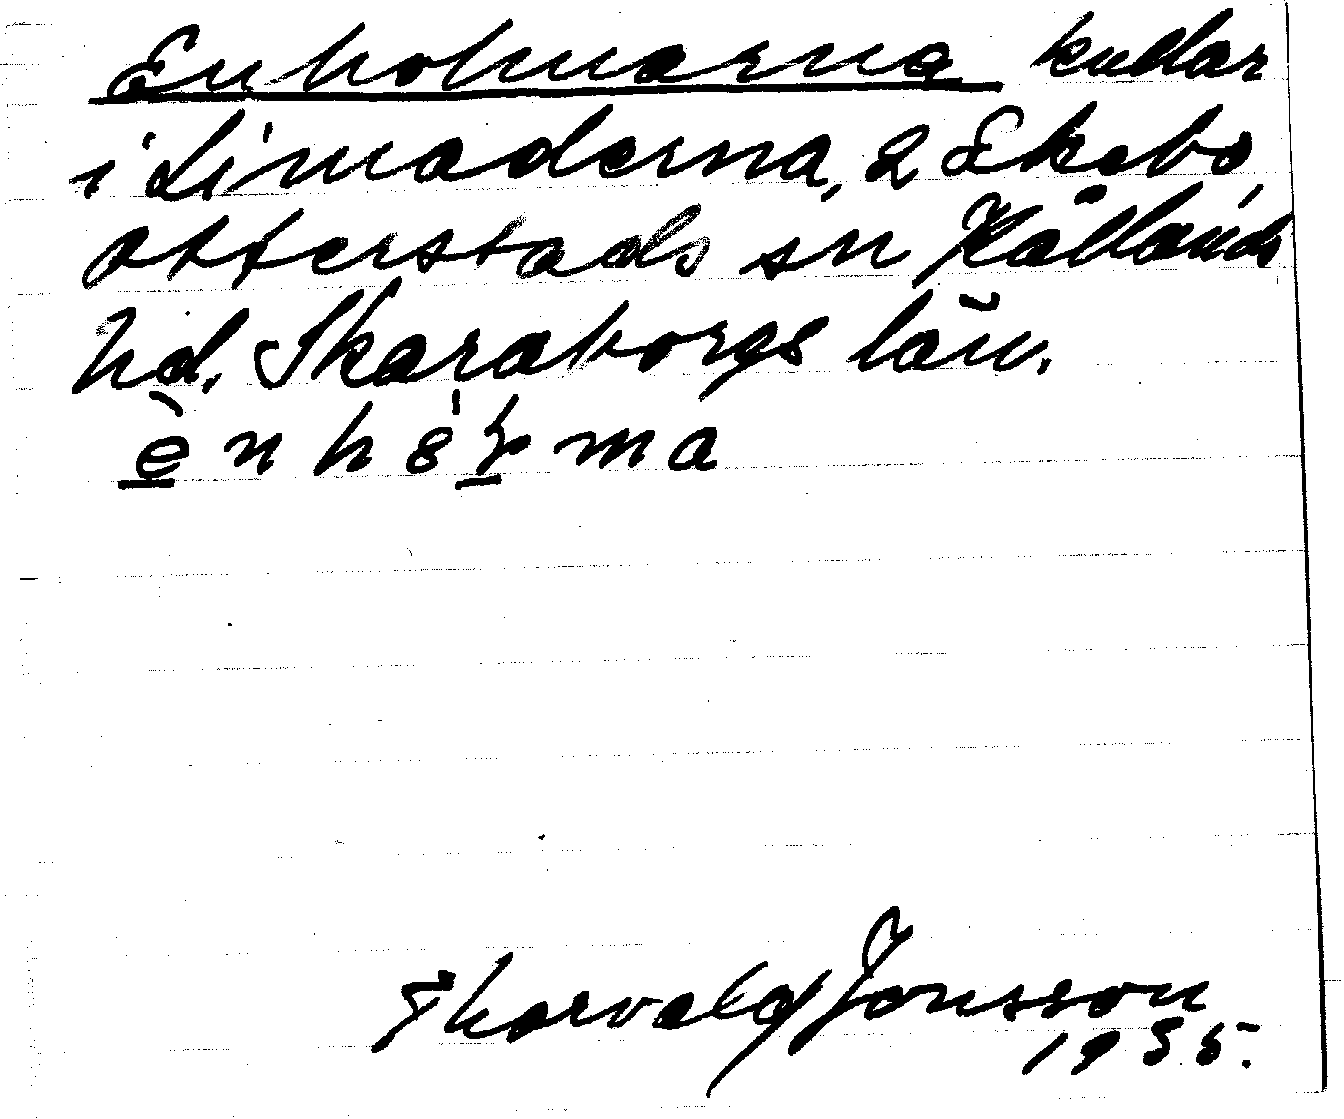 Enholmarna kullar
i Limaderna, 2 Ekebo,
Otterstads sn Kållands
hd. Skaraborgs län.
Thorvald Jonsson
1935.